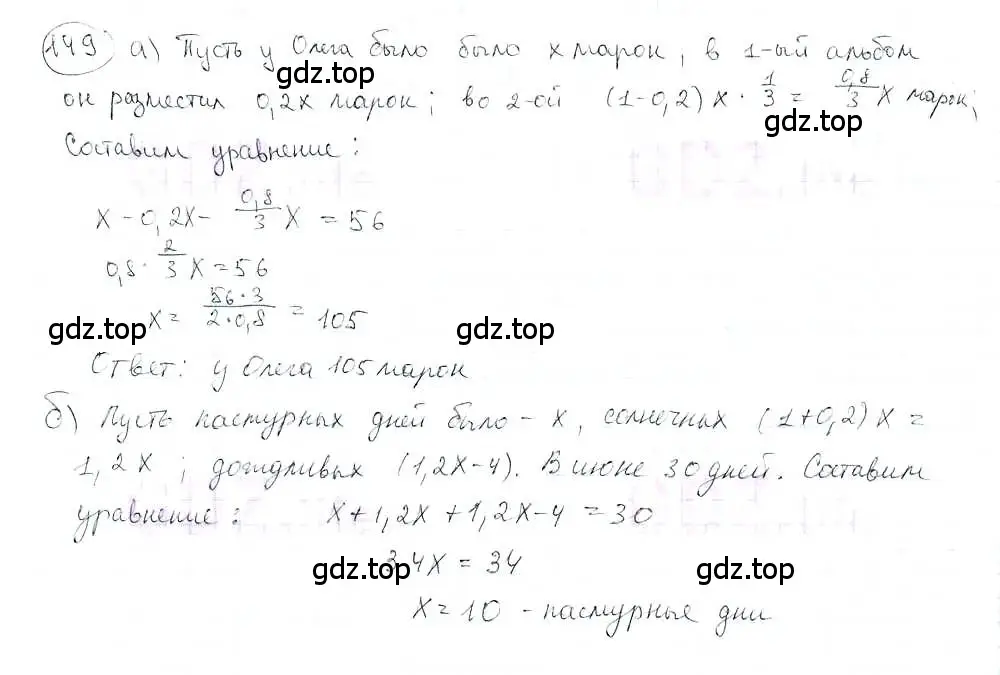 149 а) Пусть у Олега было было x марок, в 1-ый альбом
gdz.top
он разместил 0,2x марок; во 2-ой (1-0,2)x · 1/3 = 0,8/3 x марок;
gdz.top
Составим уравнение:
x - 0,2x - 0,8/3 x = 56
0,8 · 2/3 x = 56
gdz.top x = 56·3/2·0,8 = 105 gdz.top
Ответ: у Олега 105 марок
б) Пусть пасмурных дней было - x, солнечных (1+0,2)x =
1,2x; дождливых (1,2x-4). В июне 30 дней. Составим
уравнение: x+1,2x+1,2x-4=30
gdz.top 3,4x = 34 gdz.top
x=10 - пасмурные дни